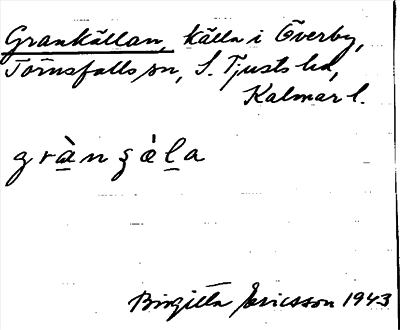 Grankällan, källa i Överby,
Törnsfalls sn, S. Tjusts hd,
Kalmar l.
gràn ʂɑ̀̈l̠a
Birgitta Ericsson 1943